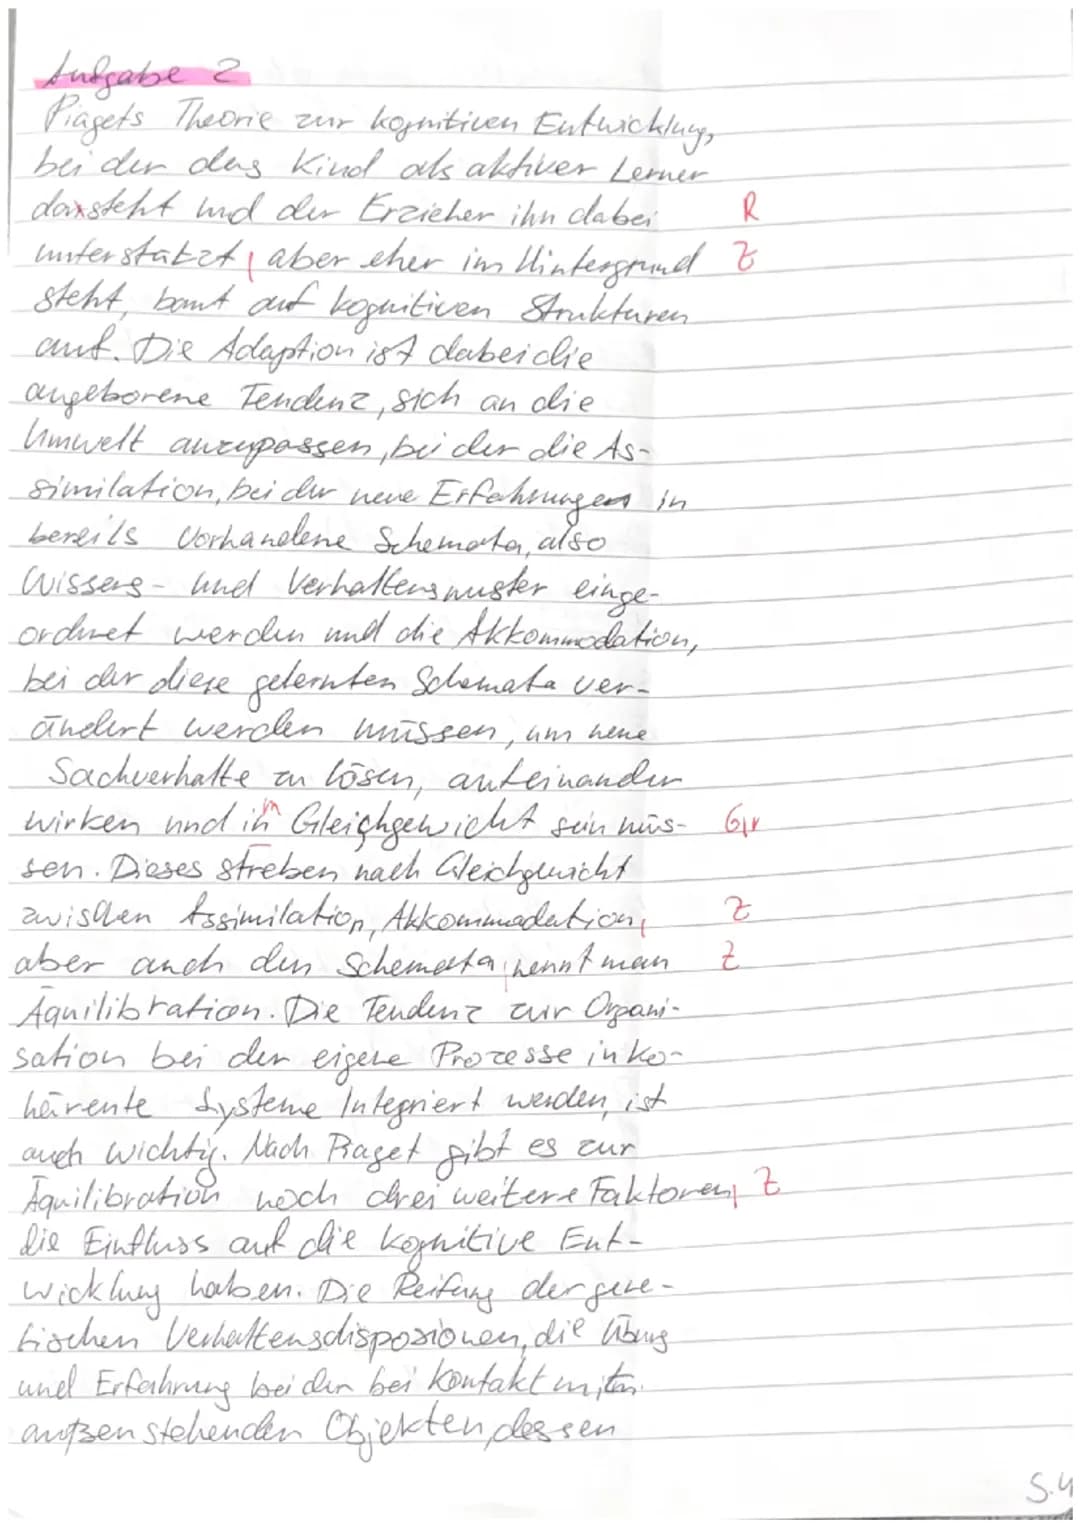 Aufgabe 2
Piagets Theorie zur kognitiven Entwicklung,
bei der das Kind als aktiver Lerner
darsteht und der Erzieher ihn dabei R
unterstützt, aber eher im Hintergrund Z
steht, baut auf kognitiven Strukturen
auf. Die Adaption ist dabei die
angeborene Tendenz, sich an die
Umwelt anzupassen, bei der die As-
similation, bei der neue Erfahrungen in
bereits Vorhandene Schemata, also
Wissens- und Verhaltensmuster einge-
ordnet werden und die Akkommodation,
bei der diese gelernten Schemata ver-
ändert werden müssen, um neue
Sachverhalte zu lösen, aufeinander
wirken und im Gleichgewicht sein müs- Gr
sen. Dieses streben nach Gleichgewicht
zwischen Assimilation, Akkommodation, Z
aber auch den Schemata, nennt man Z
Äquilibration. Die Tendenz zur Organi-
sation bei der eigene Prozesse in ko-
härente Systeme Integriert werden, ist
auch wichtig. Nach Piaget gibt es zur
Äquilibration noch drei weitere Faktoren, Z
die Einfluss auf die kognitive Ent-
wicklung haben. Die Reifung der gene-
tischen Verhaltensdisposionen, die Übung
und Erfahrung bei der bei Kontakt mit
außenstehenden Objekten, dessen
S.4